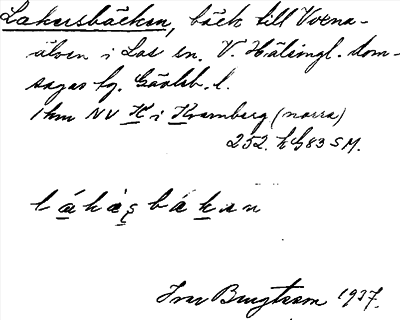 Lakersbäcken, bäck till Voxna-
älven i Los sn. V. Hälsingl. dom-
sagas tg. Gävleb. l.
1 km NV K i Kvarnberg (norra)
252. hG83 SM.
Ivar Bengtsson 1937.